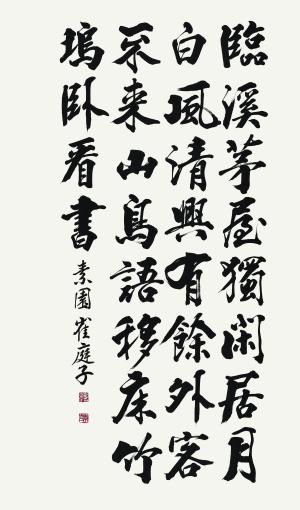 臨溪茅屋獨閑居月
白風清興有餘外客
不來山鳥語移床竹
塢臥看書
素園崔庭子